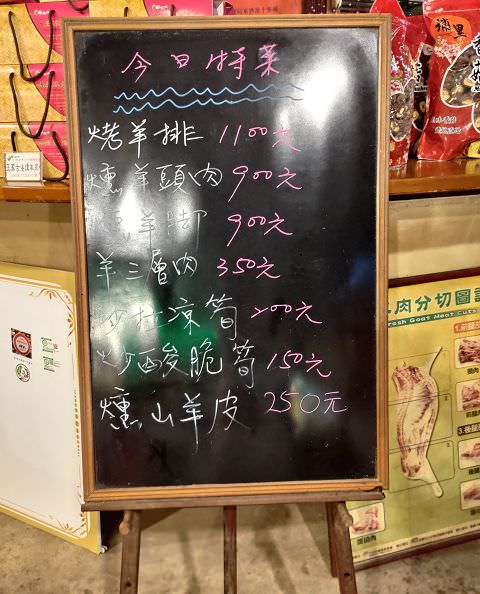 今日特菜
烤羊排 1100元
燻羊頭肉 900元
羊腳 900元
羊三層肉 350元
沙拉涼筍 200元
炒酸脆筍 150元
燻山羊皮 250元
肉分切圖
Fresh Goat Meat Cuts